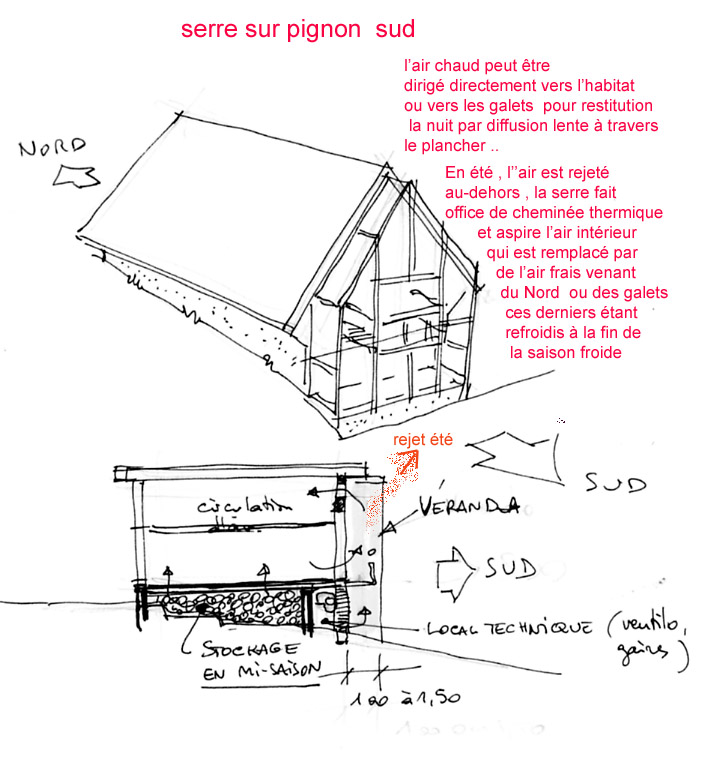 serre sur pignon  sud
l'air chaud peut être
dirigé directement vers l'habitat
ou vers les galets  pour restitution
la nuit par diffusion lente à travers
le plancher ..
NORD
En été , l''air est rejeté
au-dehors , la serre fait
office de cheminée thermique
et aspire l'air intérieur
qui est remplacé par
de l'air frais venant
du Nord  ou des galets
ces derniers étant
refroidis à la fin de
la saison froide
rejet été
SUD
circulation
VÉRANDA
SUD
LOCAL TECHNIQUE (ventilo,
gaines)
STOCKAGE
EN MI-SAISON
100 à 1,50